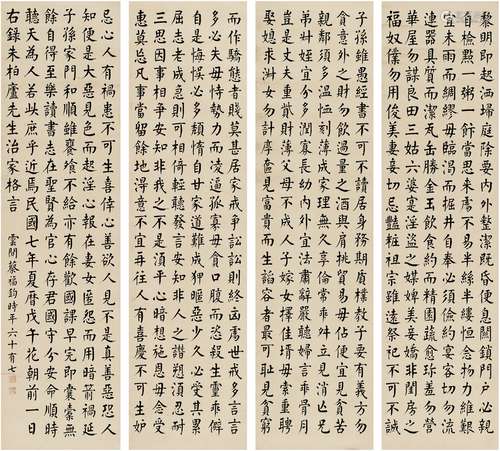 黎明即起洒掃庭除要內外整潔既昏便息關鎖門戶必親
自檢點一粥一飯當思來處不易半絲半縷恒念物力維艱
宜未雨而綢繆毋臨渴而掘井自奉必須儉約宴客切勿流
連器具質而潔瓦缶勝金玉飲食約而精園蔬愈珍饈勿營
華屋勿謀良田三姑六婆寔淫盜之媒婢美妾嬌非閨房之
福奴僕勿用俊美妻妾切忌艷粧祖宗雖遠祭祀不可不誠
子孫雖愚經書不可不讀居身務期質樸教子要有義方勿
貪意外之財勿飲過量之酒與肩挑貿易毋佔便宜見貧苦
親鄰須多溫恤刻薄成家理無久享倫常乖舛立見消亡兄
弟叔姪宜分多潤寡長幼內外宜法肅辭嚴聽婦言乖骨肉
豈是丈夫重貲財薄父母不成人子嫁女擇佳壻毋索重聘
娶媳求淑女勿計厚奩見富貴而生諂容者最可恥見貧窮
而作驕態者賤莫甚居家戒爭訟訟則終凶處世戒多言言
多必失毋恃勢力而凌逼孤寡毋貪口腹而恣殺生靈乖僻自
是悔悞必多頹惰自甘家道難成狎暱惡少久必受其累
屈志老成急則可相倚輕聽發言安知非人之譖愬須忍耐
三思因事相爭安知非我不是須平心暗想施恩毋念受
惠莫忘凡事當留餘地得意不宜再往人有喜慶不可生
忌心人有禍患不可生喜倖心善欲人見不是真善惡恐人
知便是大惡見色而起淫心報在妻女匿怨而用暗箭禍延
子孫家門和順雖饔飧不給亦有餘歡國課早完即囊橐無
餘自得至樂讀書志在聖賢為官心存君國守分安命順時
聽天為人若此庶乎近焉民國七年夏曆戊午花朝前一日
右錄朱柏廬先生治家格言
雲間蔡福鈞時年六十有七